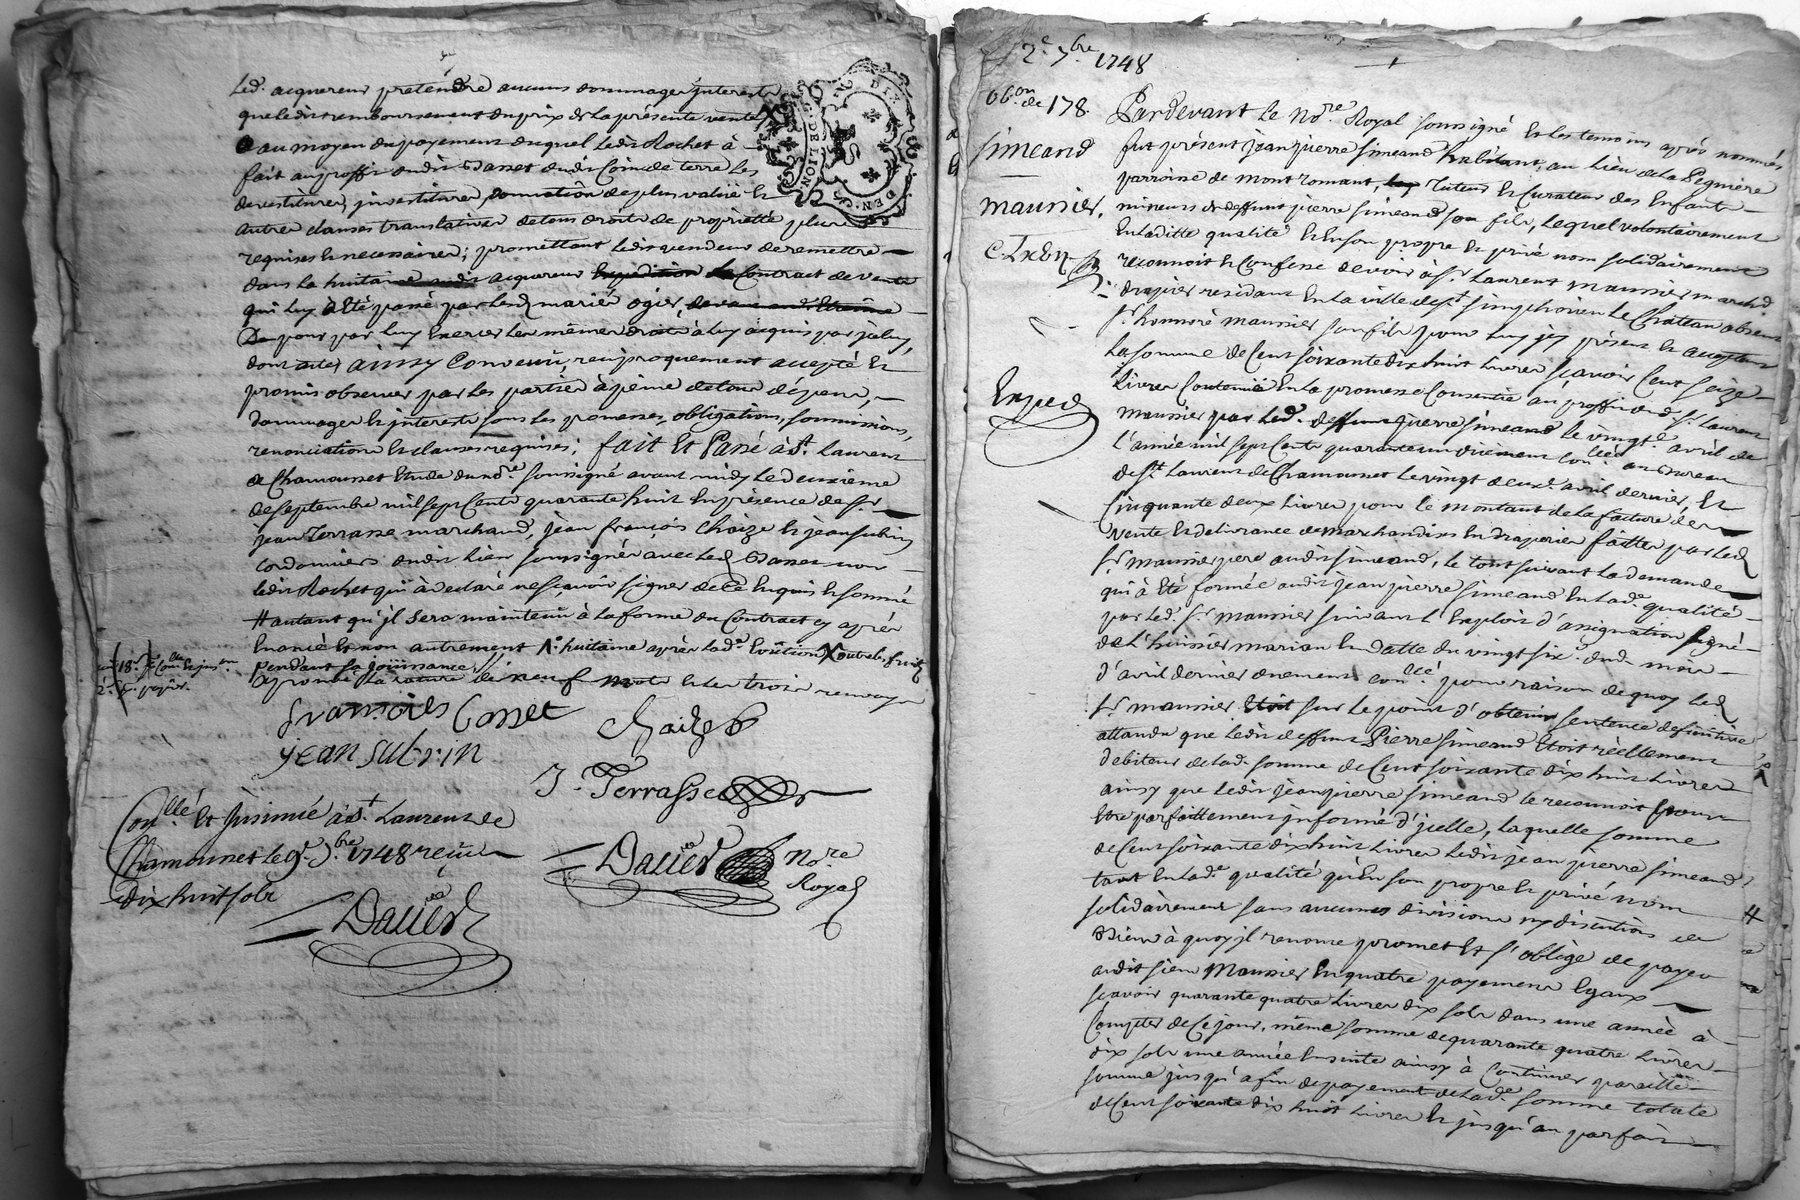 led. acquereur pretendre aucuns dommages interests
que ledit remboursement du prix de la présente vente
au moyen du payement duquel ledit Rochet à
fait au proffit dudit Gasset dudit Coin de terre les
devestiture, investiture donnation de plus valüe et
autres clauses translatives de tous droits de proprietté plus
requises et necessaires; promettant ledit vendeur de remettre
dans la huitaine audit acquereur Expedition du Contract de vente
qui luy à Eté passé par lesd. mariés ogier,
pour par luy Exercer les mêmes droits à luy acquis par jceluy,
dont acte, ainsy Convenu, reciproquement accepté et
promis observer par les parties à peine de tous dépens,
dommages et interests sous les promesses, obligations, soumissions,
renonciations et clauses requises; fait et Passé à St. Laurent
de Chamousset Etude du no.re soussigné avant midy le deuxieme
de septembre mil sept cents quarante huit En présence de Sr.
jean Terrasse marchand, jean françois Chaize et jean subrin
Cordonniers dudit lieu soussignés avec led. Gasset non
ledit Rochet qui à declaré ne sçavoir signer de ce Enquis et sommé
# autant qu'il sera maintenu à la forme du Contract cy après
Enoncé et non autrement huitaine après lad.e Eviction X outre les fruits
Pendant sa joüissance
approuvé la rature de neuf mots et les trois renvoys
françois Gasset
Chaize
jean subrin
J. Terrasse
Con.llé Et Jnsinué à St. Laurent de
Chamousset le 9e. 7.bre 1748 reçu
dix huit sols
Daüer
Daüer No.re
Royal
G. DE LION
DIX
DEN.S
2.e 7.bre 1748
Ob.on de 178.
simeand
maunier.
Exped
Pardevant Le No.re Royal soussigné Et les temoins après nommés
fut présent jean pierre simeand habitant, au lieu de la Pegniere
parroisse de mont romant, Tuteur Et Curateur des Enfants
mineurs de deffunt pierre simeand son fils, Lequel volontairement
En laditte qualité Et En son propre Et privé nom solidairement
reconnoit et Confesse devoir à Sr. Laurent maunier march.d
drapier residant En la ville de St. simphorien le Chateau absent
Sr. honnoré maunier son fils pour luy jcy présent Et acceptant
La somme de Cent soixante dix huit Livres sçavoir Cent seize
Livres Contenuë En la promesse Consentie au proffit dud. Sr. Laurent
maunier par led. deffunt pierre simeand le vingt.e avril de
l'année mil sept Cents quarante un düement Con.llée au Bureau
de St. Laurent de Chamousset le vingt deux.e avril dernier, Et
Cinquante deux Livres pour le montant de la facture de
vente Et delivrance de marchandises En draperies faitte par led.
Sr. maunier pere audit simeand, le tout suivant la demande
qui à Eté formée audit jean pierre simeand En lad.e qualité
par led. Sr. maunier suivant l'Exploit d'assignation signé
de l'huissier marian En datte du vingt six.e dud. mois
d'avril dernier düement Con.llé pour raison de quoy led.
Sr. maunier Etoit sur le point d'obtenir sentence definitive
attandu que ledit deffunt Pierre simeand Etoit réellement
débiteur de lad. somme de Cent soixante dix huit Livres
ainsy que ledit jean pierre simeand le reconnoit pour
Etre parfaittement jnformé d'jcelle, laquelle somme
de Cent soixante dix huit Livres ledit jean pierre simeand
tant En lad.e qualité qu'En son propre Et privé nom
solidairement sans aucunes divisions ny discutions de
Biens à quoy jl renonce promet Et s'oblige de payer
audit sieur Maunier En quatre payements Egaux
sçavoir quarante quatre Livres dix sols dans une année à
Compter de Ce jour, même somme de quarante quatre Livres
dix sols une année Ensuite ainsy à Continuer pareille
somme jusqu'a fin de payement de lad.e somme totale
de Cent soixante dix huit Livres Et jusqu'au parfait